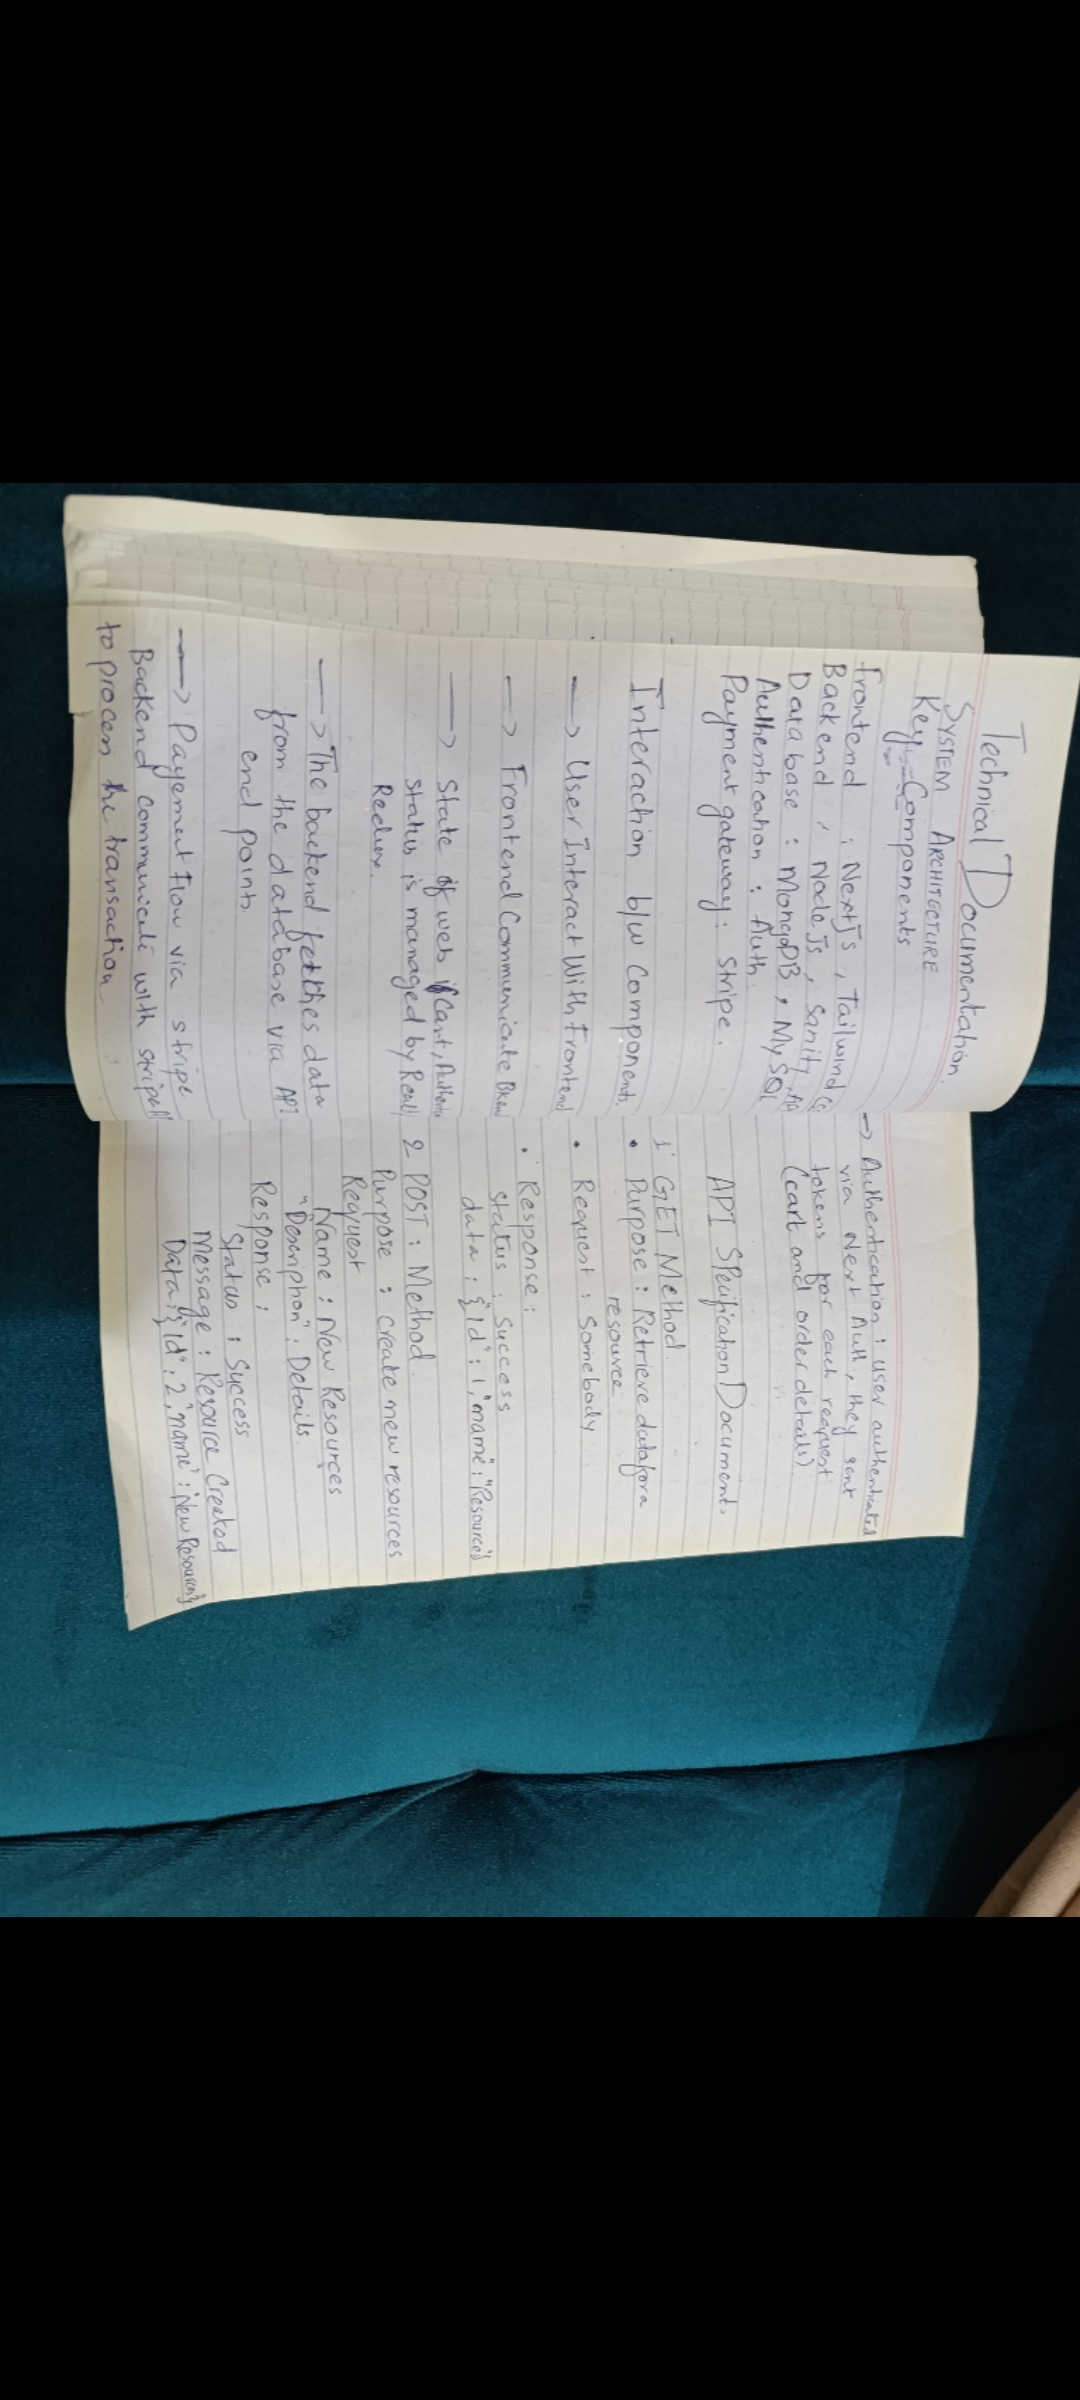 Technical Documentation.
SYSTEM ARCHITECTURE
Key Components
frontend : Nextjs, Tailwind
Backend : Node js, Sanity,
Database : MongoDB, MySQL
Authentication : Auth
Payment gateway : Stripe.
Interaction b/w Components.
→ User Interact With frontend
→ Frontend Communicate
→ State of web Cart,
status is managed by
Redux.
→ The backend fetches data
from the database via API
end points
→ Payement Flow via stripe
Backend communicate with stripe
to process the transaction
→ Authentication : user authenticated
via Next Auth, they sent
tokens for each request
(cart and order details)
API SPecification Document.
1 GET Method.
• Purpose : Retrieve data for a
resource.
• Request : Somebody
• Response :
status : Success
data : {"Id" : 1, "name" : "Resource"}
2 POST : Method
Purpose : create new resources
Request
Name : New Resources
"Description" : Details.
Response :
Status : Success
Message : Resource Created
Data : {"Id" : 2, "name" : "New Resources"}